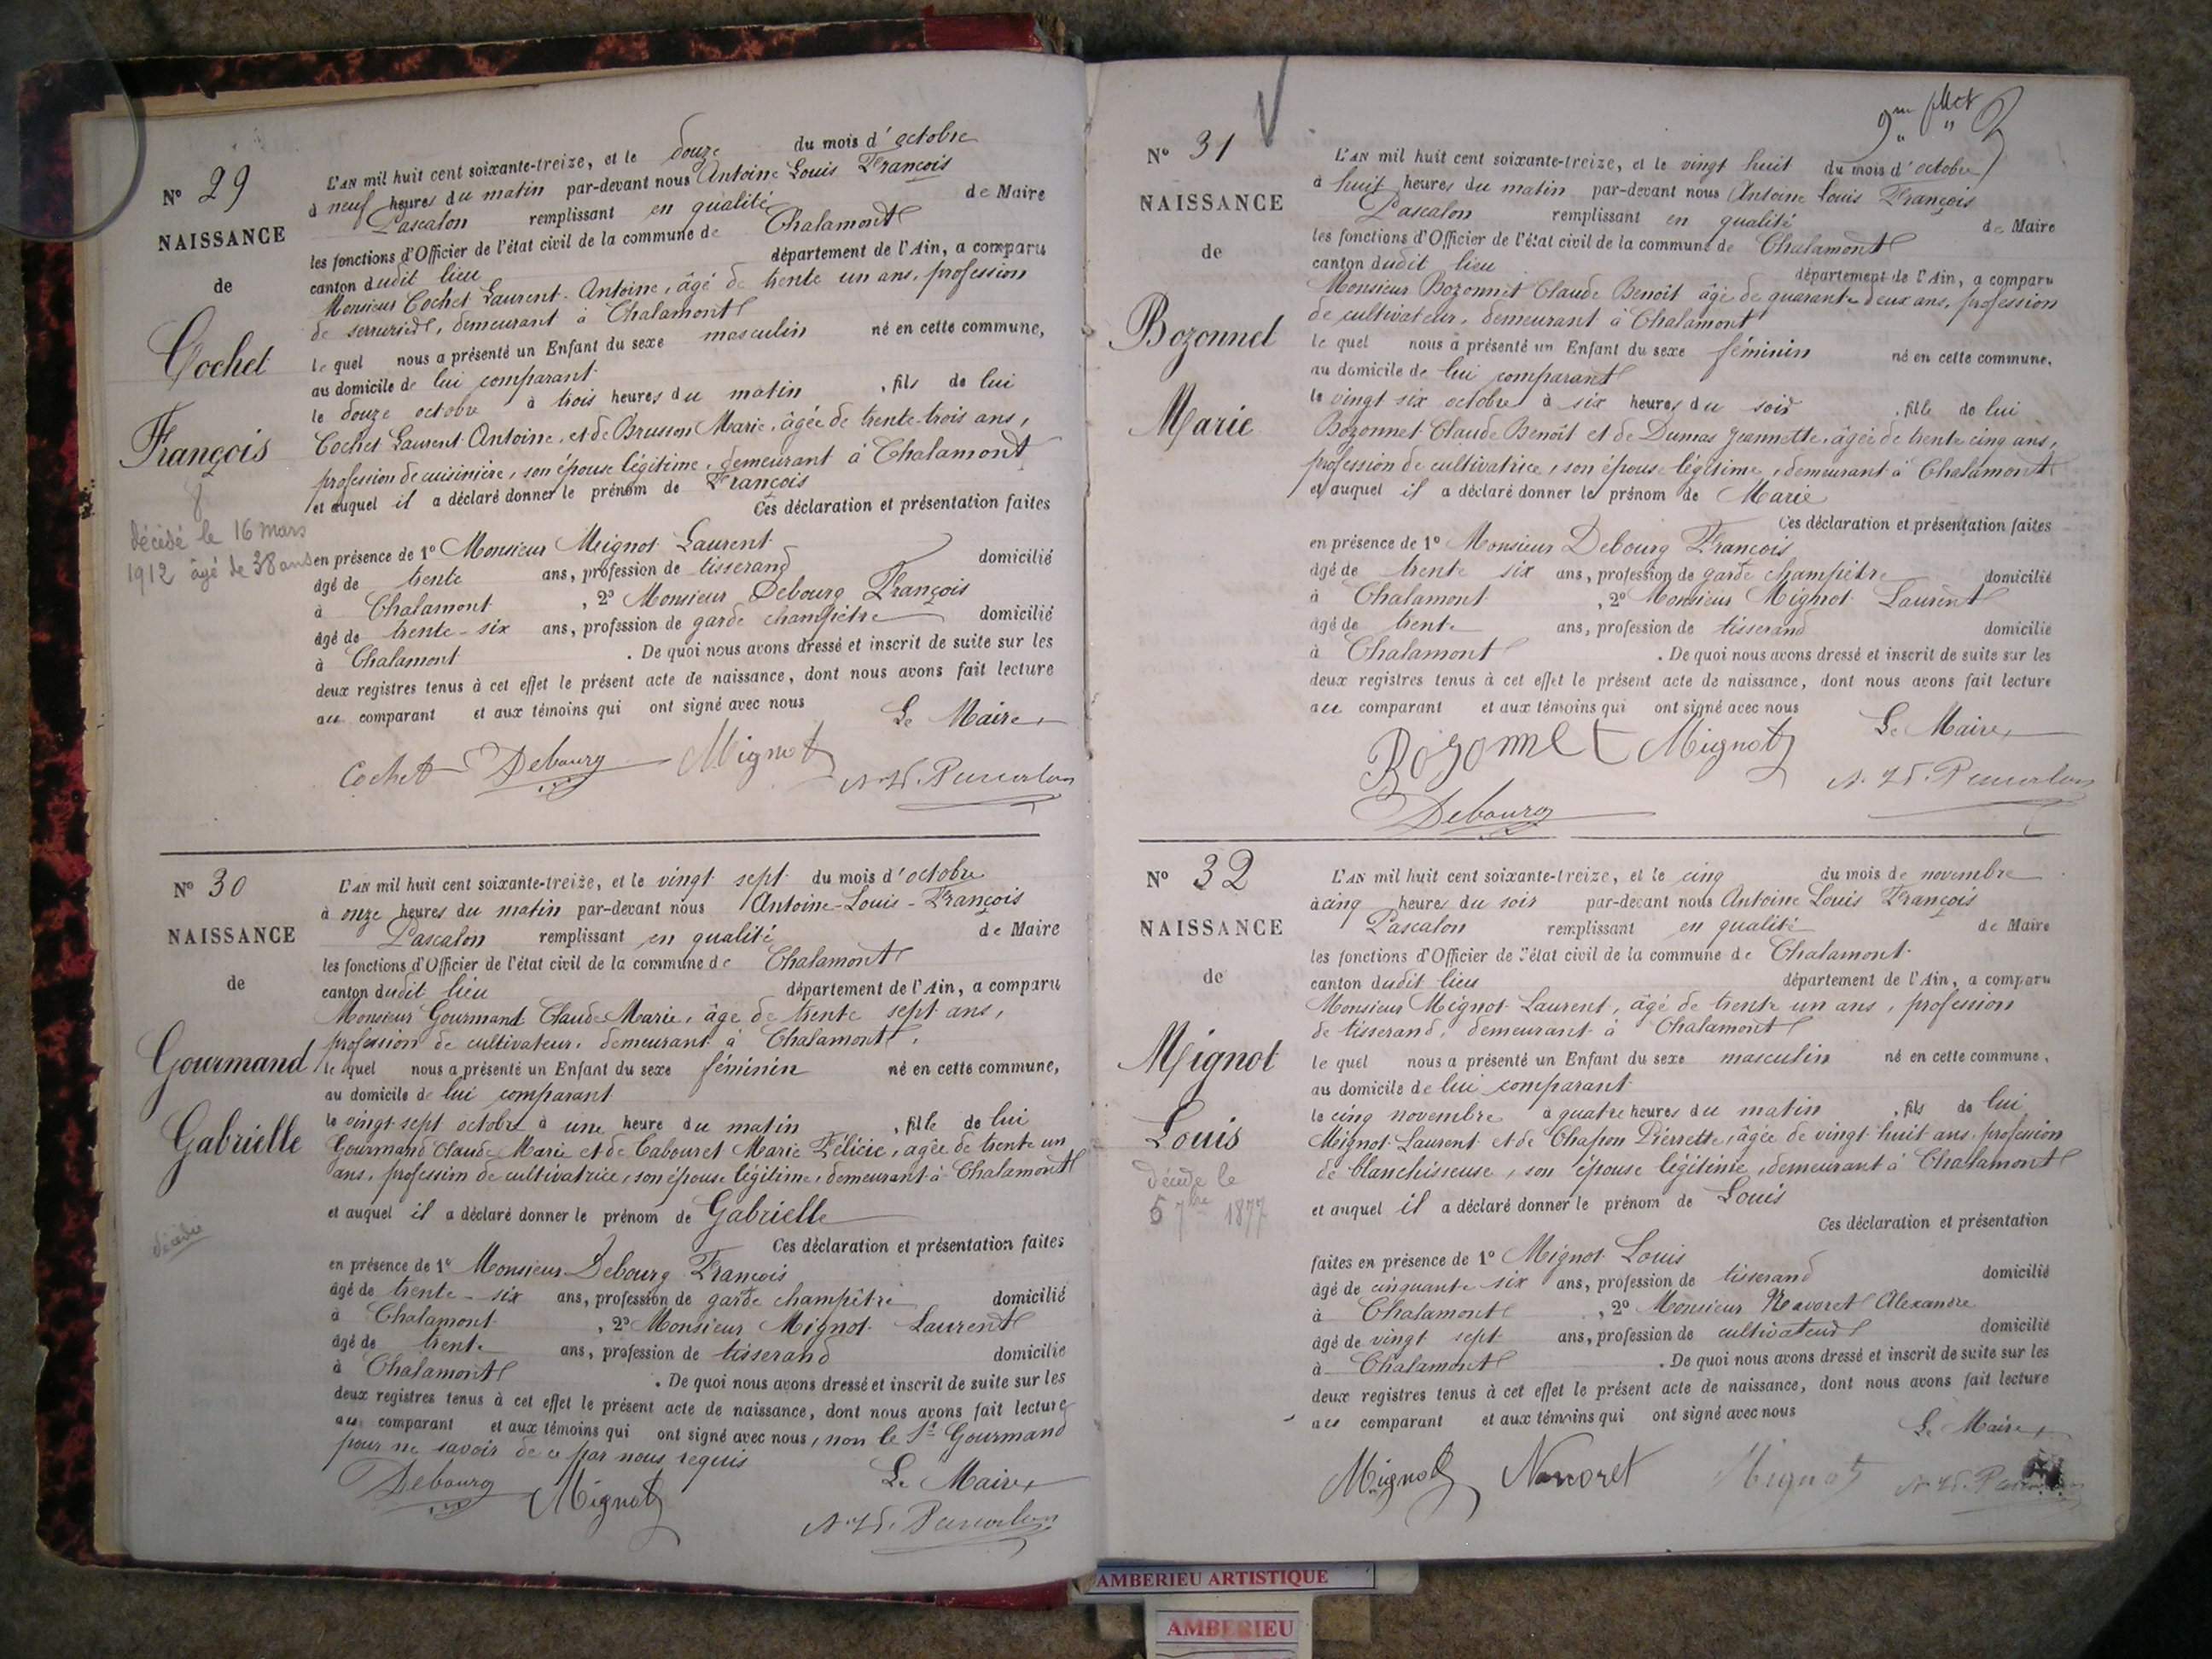 N° 29
NAISSANCE
de
Cochet
François
décédé le 16 mars
1912 âgé de 38 ans
L'AN mil huit cent soixante-treize, et le douze du mois d'octobre
à neuf heures du matin par-devant nous Antoine Louis François
Pascalon remplissant en qualité de Maire
les fonctions d'Officier de l'état civil de la commune de Chalamont
canton dudit lieu département de l'Ain, a comparu
Monsieur Cochet Laurent-Antoine, âgé de trente un ans, profession
de serrurier, demeurant à Chalamont
le quel nous a présenté un Enfant du sexe masculin né en cette commune,
au domicile de lui comparant
le douze octobre à trois heures du matin , fils de lui
Cochet Laurent Antoine, et de Brusson Marie, âgée de trente-trois ans,
profession de cuisinière, son épouse légitime, demeurant à Chalamont
et auquel il a déclaré donner le prénom de François
Ces déclaration et présentation faites
en présence de 1° Monsieur Mignot Laurent
âgé de trente ans, profession de tisserand domicilié
à Chalamont , 2° Monsieur Debourg François
âgé de trente-six ans, profession de garde champêtre domicilié
à Chalamont . De quoi nous avons dressé et inscrit de suite sur les
deux registres tenus à cet effet le présent acte de naissance, dont nous avons fait lecture
au comparant et aux témoins qui ont signé avec nous
Le Maire
Cochet Debourg Mignot A. L. F. Pascalon
N° 30
NAISSANCE
de
Gourmand
Gabrielle
décédée
L'AN mil huit cent soixante-treize, et le vingt sept du mois d'octobre
à onze heures du matin par-devant nous Antoine-Louis-François
Pascalon remplissant en qualité de Maire
les fonctions d'Officier de l'état civil de la commune de Chalamont
canton dudit lieu département de l'Ain, a comparu
Monsieur Gourmand Claude Marie, âgé de trente sept ans,
profession de cultivateur, demeurant à Chalamont,
le quel nous a présenté un Enfant du sexe féminin né en cette commune,
au domicile de lui comparant
le vingt-sept octobre à une heure du matin , fille de lui
Gourmand Claude Marie et de Cabouret Marie Félicie, âgée de trente un
ans, profession de cultivatrice, son épouse légitime, demeurant à Chalamont
et auquel il a déclaré donner le prénom de Gabrielle
Ces déclaration et présentation faites
en présence de 1° Monsieur Debourg François
âgé de trente-six ans, profession de garde champêtre domicilié
à Chalamont , 2° Monsieur Mignot Laurent
âgé de trente ans, profession de tisserand domicilié
à Chalamont . De quoi nous avons dressé et inscrit de suite sur les
deux registres tenus à cet effet le présent acte de naissance, dont nous avons fait lecture
au comparant et aux témoins qui ont signé avec nous, non le Sr Gourmand
pour ne savoir de ce par nous requis
Le Maire
Debourg Mignot A. L. F. Pascalon
N° 31
NAISSANCE
de
Bozonnet
Marie
L'AN mil huit cent soixante-treize, et le vingt huit du mois d'octobre
à huit heures du matin par-devant nous Antoine Louis François
Pascalon remplissant en qualité de Maire
les fonctions d'Officier de l'état civil de la commune de Chalamont
canton dudit lieu département de l'Ain, a comparu
Monsieur Bozonnet Claude Benoît âgé de quarante deux ans, profession
de cultivateur, demeurant à Chalamont
le quel nous a présenté un Enfant du sexe féminin né en cette commune,
au domicile de lui comparant
le vingt six octobre à six heures du soir , fille de lui
Bozonnet Claude Benoît et de Dumas Jeannette, âgée de trente cinq ans,
profession de cultivatrice, son épouse légitime, demeurant à Chalamont
et auquel il a déclaré donner le prénom de Marie
Ces déclaration et présentation faites
en présence de 1° Monsieur Debourg François
âgé de trente six ans, profession de garde champêtre domicilié
à Chalamont , 2° Monsieur Mignot Laurent
âgé de trente ans, profession de tisserand domicilié
à Chalamont . De quoi nous avons dressé et inscrit de suite sur les
deux registres tenus à cet effet le présent acte de naissance, dont nous avons fait lecture
au comparant et aux témoins qui ont signé avec nous
Le Maire
Bozonnet Mignot A. L. F. Pascalon
Debourg
N° 32
NAISSANCE
de
Mignot
Louis
décédé le
5 7bre 1877
L'AN mil huit cent soixante-treize, et le cinq du mois de novembre
à cinq heures du soir par-devant nous Antoine Louis François
Pascalon remplissant en qualité de Maire
les fonctions d'Officier de l'état civil de la commune de Chalamont
canton dudit lieu département de l'Ain, a comparu
Monsieur Mignot Laurent, âgé de trente un ans, profession
de tisserand, demeurant à Chalamont
le quel nous a présenté un Enfant du sexe masculin né en cette commune,
au domicile de lui comparant
le cinq novembre à quatre heures du matin , fils de lui
Mignot Laurent et de Chapon Pierrette, âgée de vingt huit ans, profession
de blanchisseuse, son épouse légitime, demeurant à Chalamont
et auquel il a déclaré donner le prénom de Louis
Ces déclaration et présentation
faites en présence de 1° Mignot Louis
âgé de cinquante six ans, profession de tisserand domicilié
à Chalamont , 2° Monsieur Navoret Alexandre
âgé de vingt sept ans, profession de cultivateur domicilié
à Chalamont . De quoi nous avons dressé et inscrit de suite sur les
deux registres tenus à cet effet le présent acte de naissance, dont nous avons fait lecture
au comparant et aux témoins qui ont signé avec nous
Le Maire
Mignot Navoret Mignot A. L. F. Pascalon
AMBERIEU ARTISTIQUE
AMBERIEU